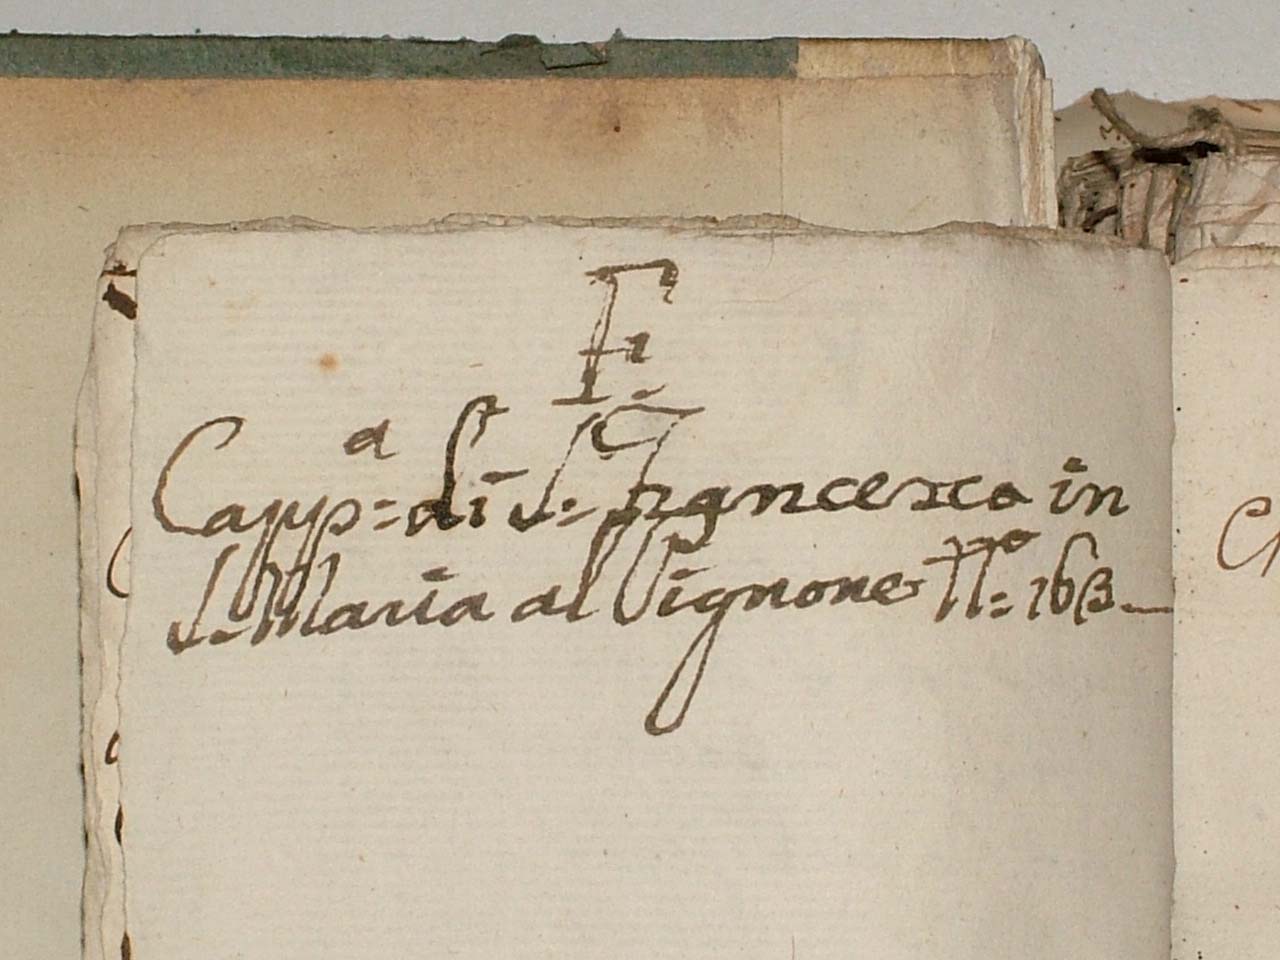 F.
Capp:ª di S. Francesco in
S. Maria al Pignone N:º 163.